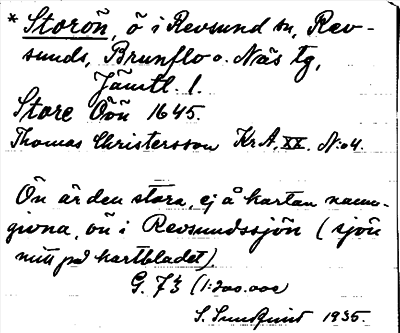 * Storön, ö i Revsund sn, Rev-
sunds, Brunflo o. Näs tg,
Jämtl. l.
Store Öön 1645.
Thomas Christersson KrA, XX. N:o 4.
Ön är den stora, ej å kartan namn-
givna, ön i Revsundssjön (sjön
mitt på kartbladet).
G. 73 (1:200.000)
S. Sundquist 1935.